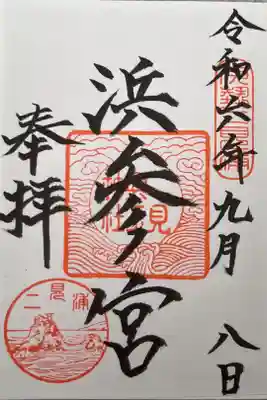 令和六年九月 八日
浜参宮
奉拝
二見浦